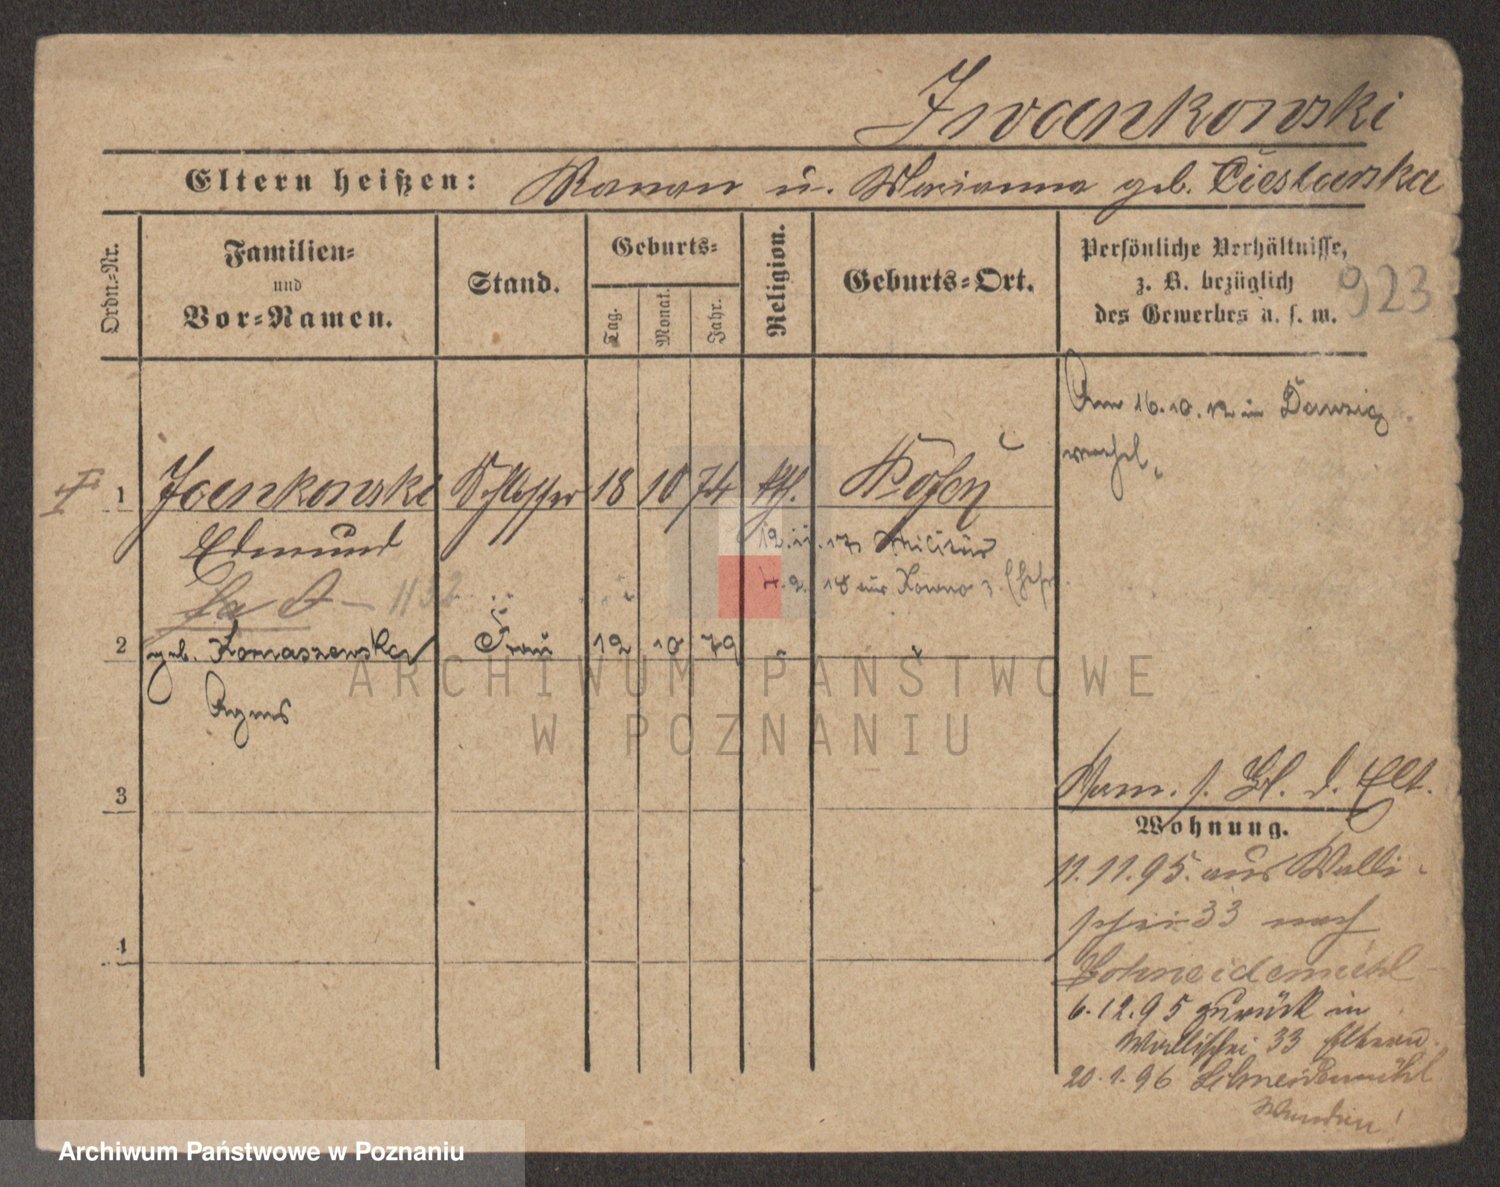 Iwankowski
Eltern heißen: Roman u. Marianna geb. Cieslanska
Ordn.-Nr.
Familien-
und
Vor-Namen.
Stand.
Geburts-
Tag.
Monat.
Jahr.
Religion.
Geburts-Ort.
Persönliche Verhältnisse,
z. B. bezüglich
des Gewerbes u. s. w.
923
Am 16.10.12 in Danzig
1 Schlosser 18 10 74 kth. Posen
Edmund
12.11.17 Militär
1132
2 geb. Tomaszewska Frau 12 10 79
Agnes
3
Nam. s. Bl. d. Elt.
Wohnung.
11.11.95. aus Walli-
schei 33 nach
Schneidemühl
6.12.95 zurück in
Wallischei 33 Eltern
20.1.96 Schneidemühl
4
ARCHIWUM PAŃSTWOWE
W POZNANIU
Archiwum Państwowe w Poznaniu